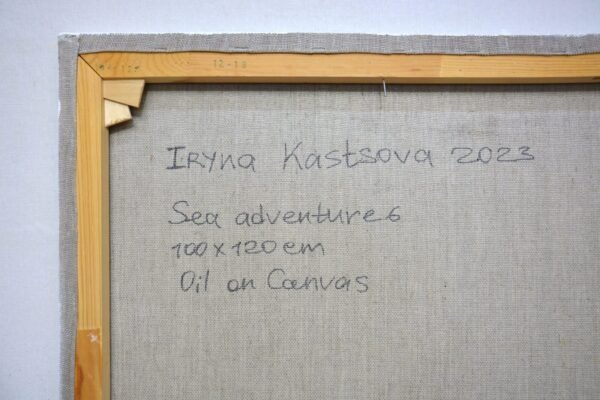 12-18
Iryna Kastsova 2023
Sea adventure 6
100x120cm
Oil on Canvas